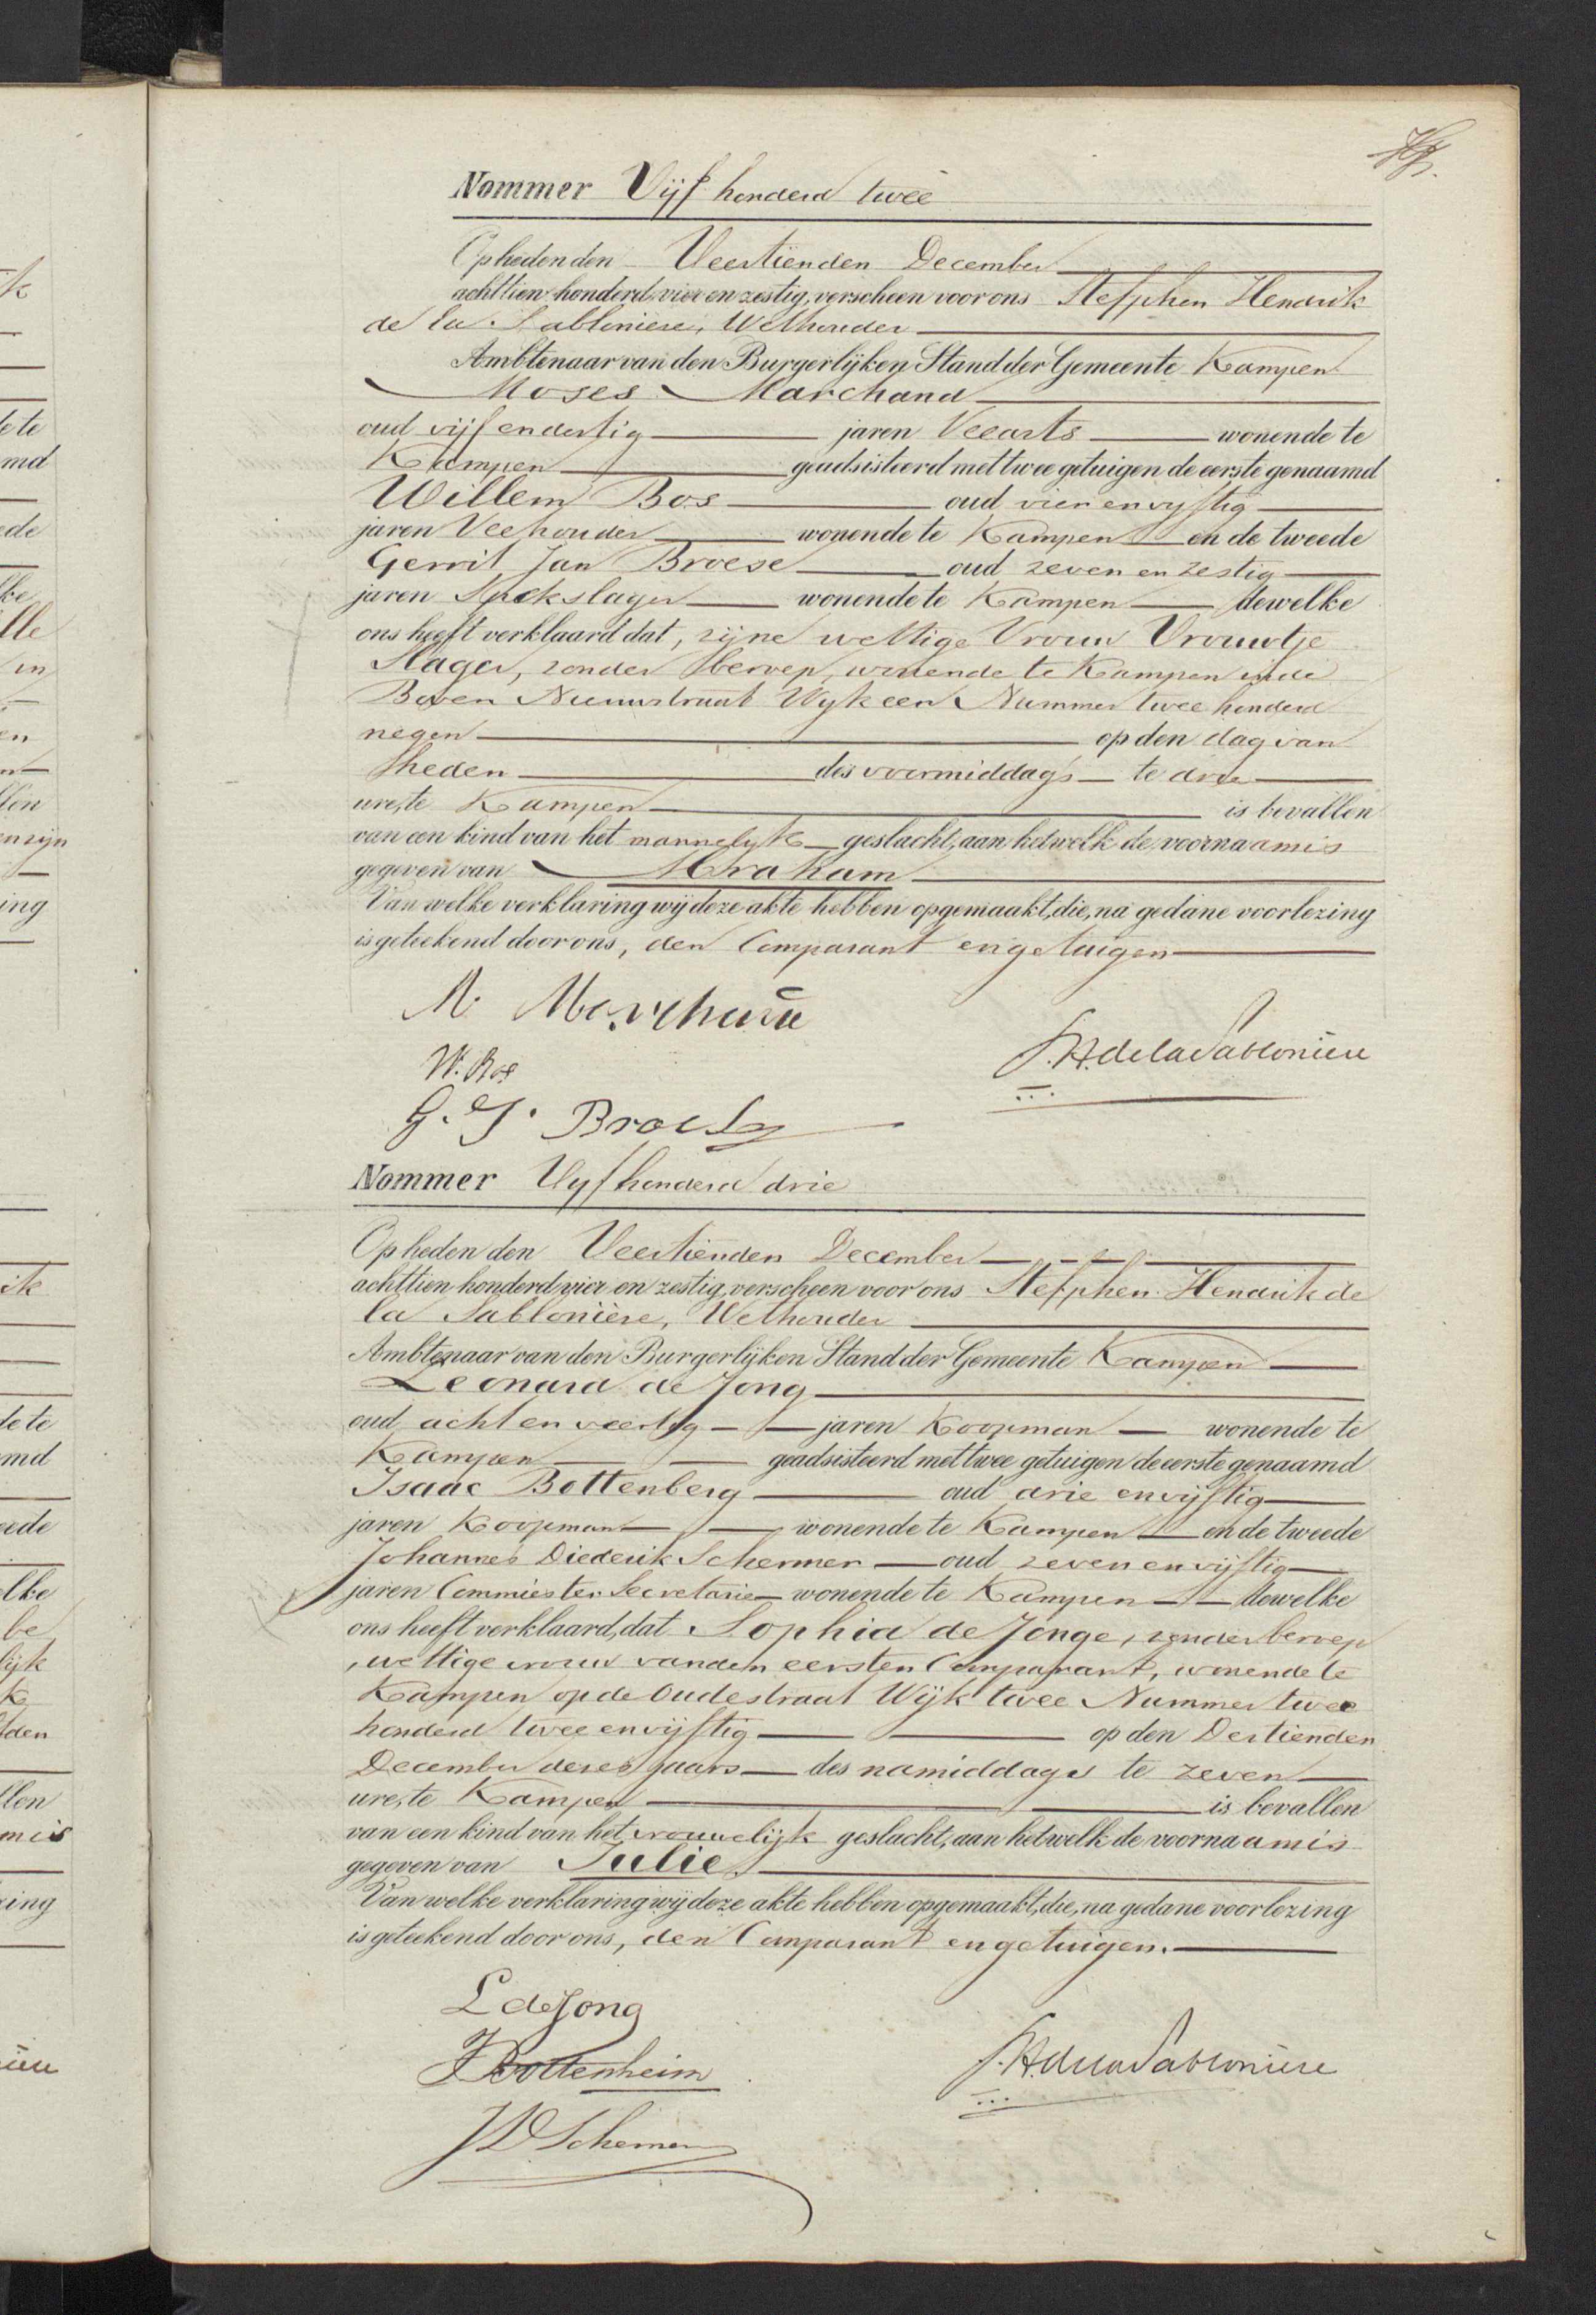 Nommer Vijf honderd twee
Op heden den Veertienden December
achttien honderd vier en zestig, verscheen voor ons Stefphen Hendrik
de la Sabloniere, Wethouder
Ambtenaar van den Burgerlijken Stand der Gemeente Kampen
Moses Marchand
oud vijf en dertig jaren Veearts wonende te
Kampen geadsisteerd met twee getuigen de eerste genaamd
Willem Bos oud vier en vyftig
jaren Veehouder wonende te Kampen en de tweede
Gerrit Jan Broese oud zeven en zestig
jaren Spekslager wonende te Kampen dewelke
ons heeft verklaard dat, zijne wettige Vrouw Vrouwtje
Slager, zonder beroep, wonende te Kampen in de
Boven Nieuwstraat Wyk een Nummer twee honderd
negen op den dag van
heden des voormiddags te drie
ure, te Kampen is bevallen
van een kind van het mannelyk geslacht, aan hetwelk de voornaam is
gegeven van Abraham
Van welke verklaring wij deze akte hebben opgemaakt, die, na gedane voorlezing
is geteekend door ons, den Comparant en getuigen
M. Marchand
S.H. de la Sabloniere
W. Bos
G. J. Broese
Nommer Vyf honderd drie
Op heden den Veertienden December
achttien honderd vier en zestig, verscheen voor ons Stefphen Hendrik de
la Sablonière, Wethouder
Ambtenaar van den Burgerlijken Stand der Gemeente Kampen
Leonard de Jong
oud acht en veertig jaren Koopman wonende te
Kampen geadsisteerd met twee getuigen de eerste genaamd
Isaac Bottenberg oud drie en vijftig
jaren Koopman wonende te Kampen en de tweede
Johannes Diederik Schermer oud zeven en vijftig
jaren Commies ter Secretarie wonende te Kampen dewelke
ons heeft verklaard, dat Sophia de Jonge, zonder beroep
, wettige vrouw van den eersten Comparant, wonende te
Kampen op de Oudestraat Wijk twee Nummer twee
honderd twee en vijftig op den Dertienden
December dezes jaars des namiddags te zeven
ure, te Kampen is bevallen
van een kind van het vrouwelijk geslacht, aan hetwelk de voornaam is
gegeven van Julie
Van welke verklaring wij deze akte hebben opgemaakt, die, na gedane voorlezing
is geteekend door ons, den Comparant en getuigen.
L de Jong
S.H. de la Sabloniere
I Bottenheim
JD Schermer